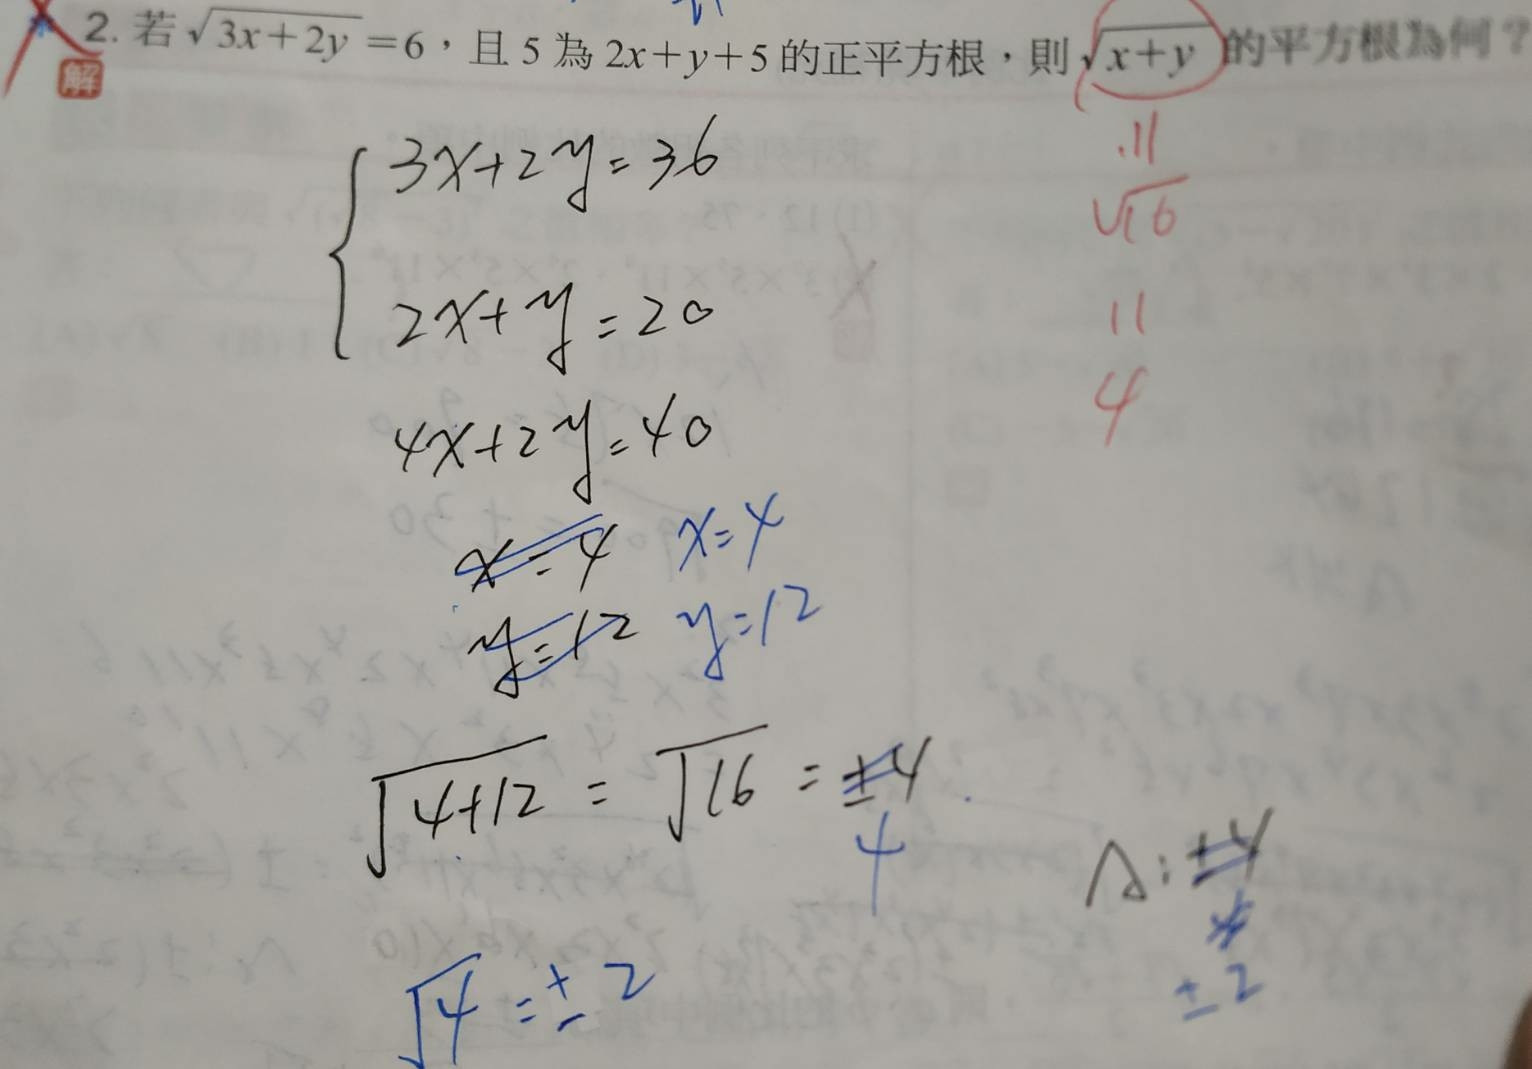 2. 若 √(3x+2y) =6，且 5 為 2x+y+5 的正平方根，則 √(x+y) 的平方根為何？
解
3x+2y=36
2x+y=20
4x+2y=40
x=4 x=4
y=12 y=12
√(4+12) = √16 = ±4
4
√4 = ±2
A: ±4
±2
11
√16
11
4